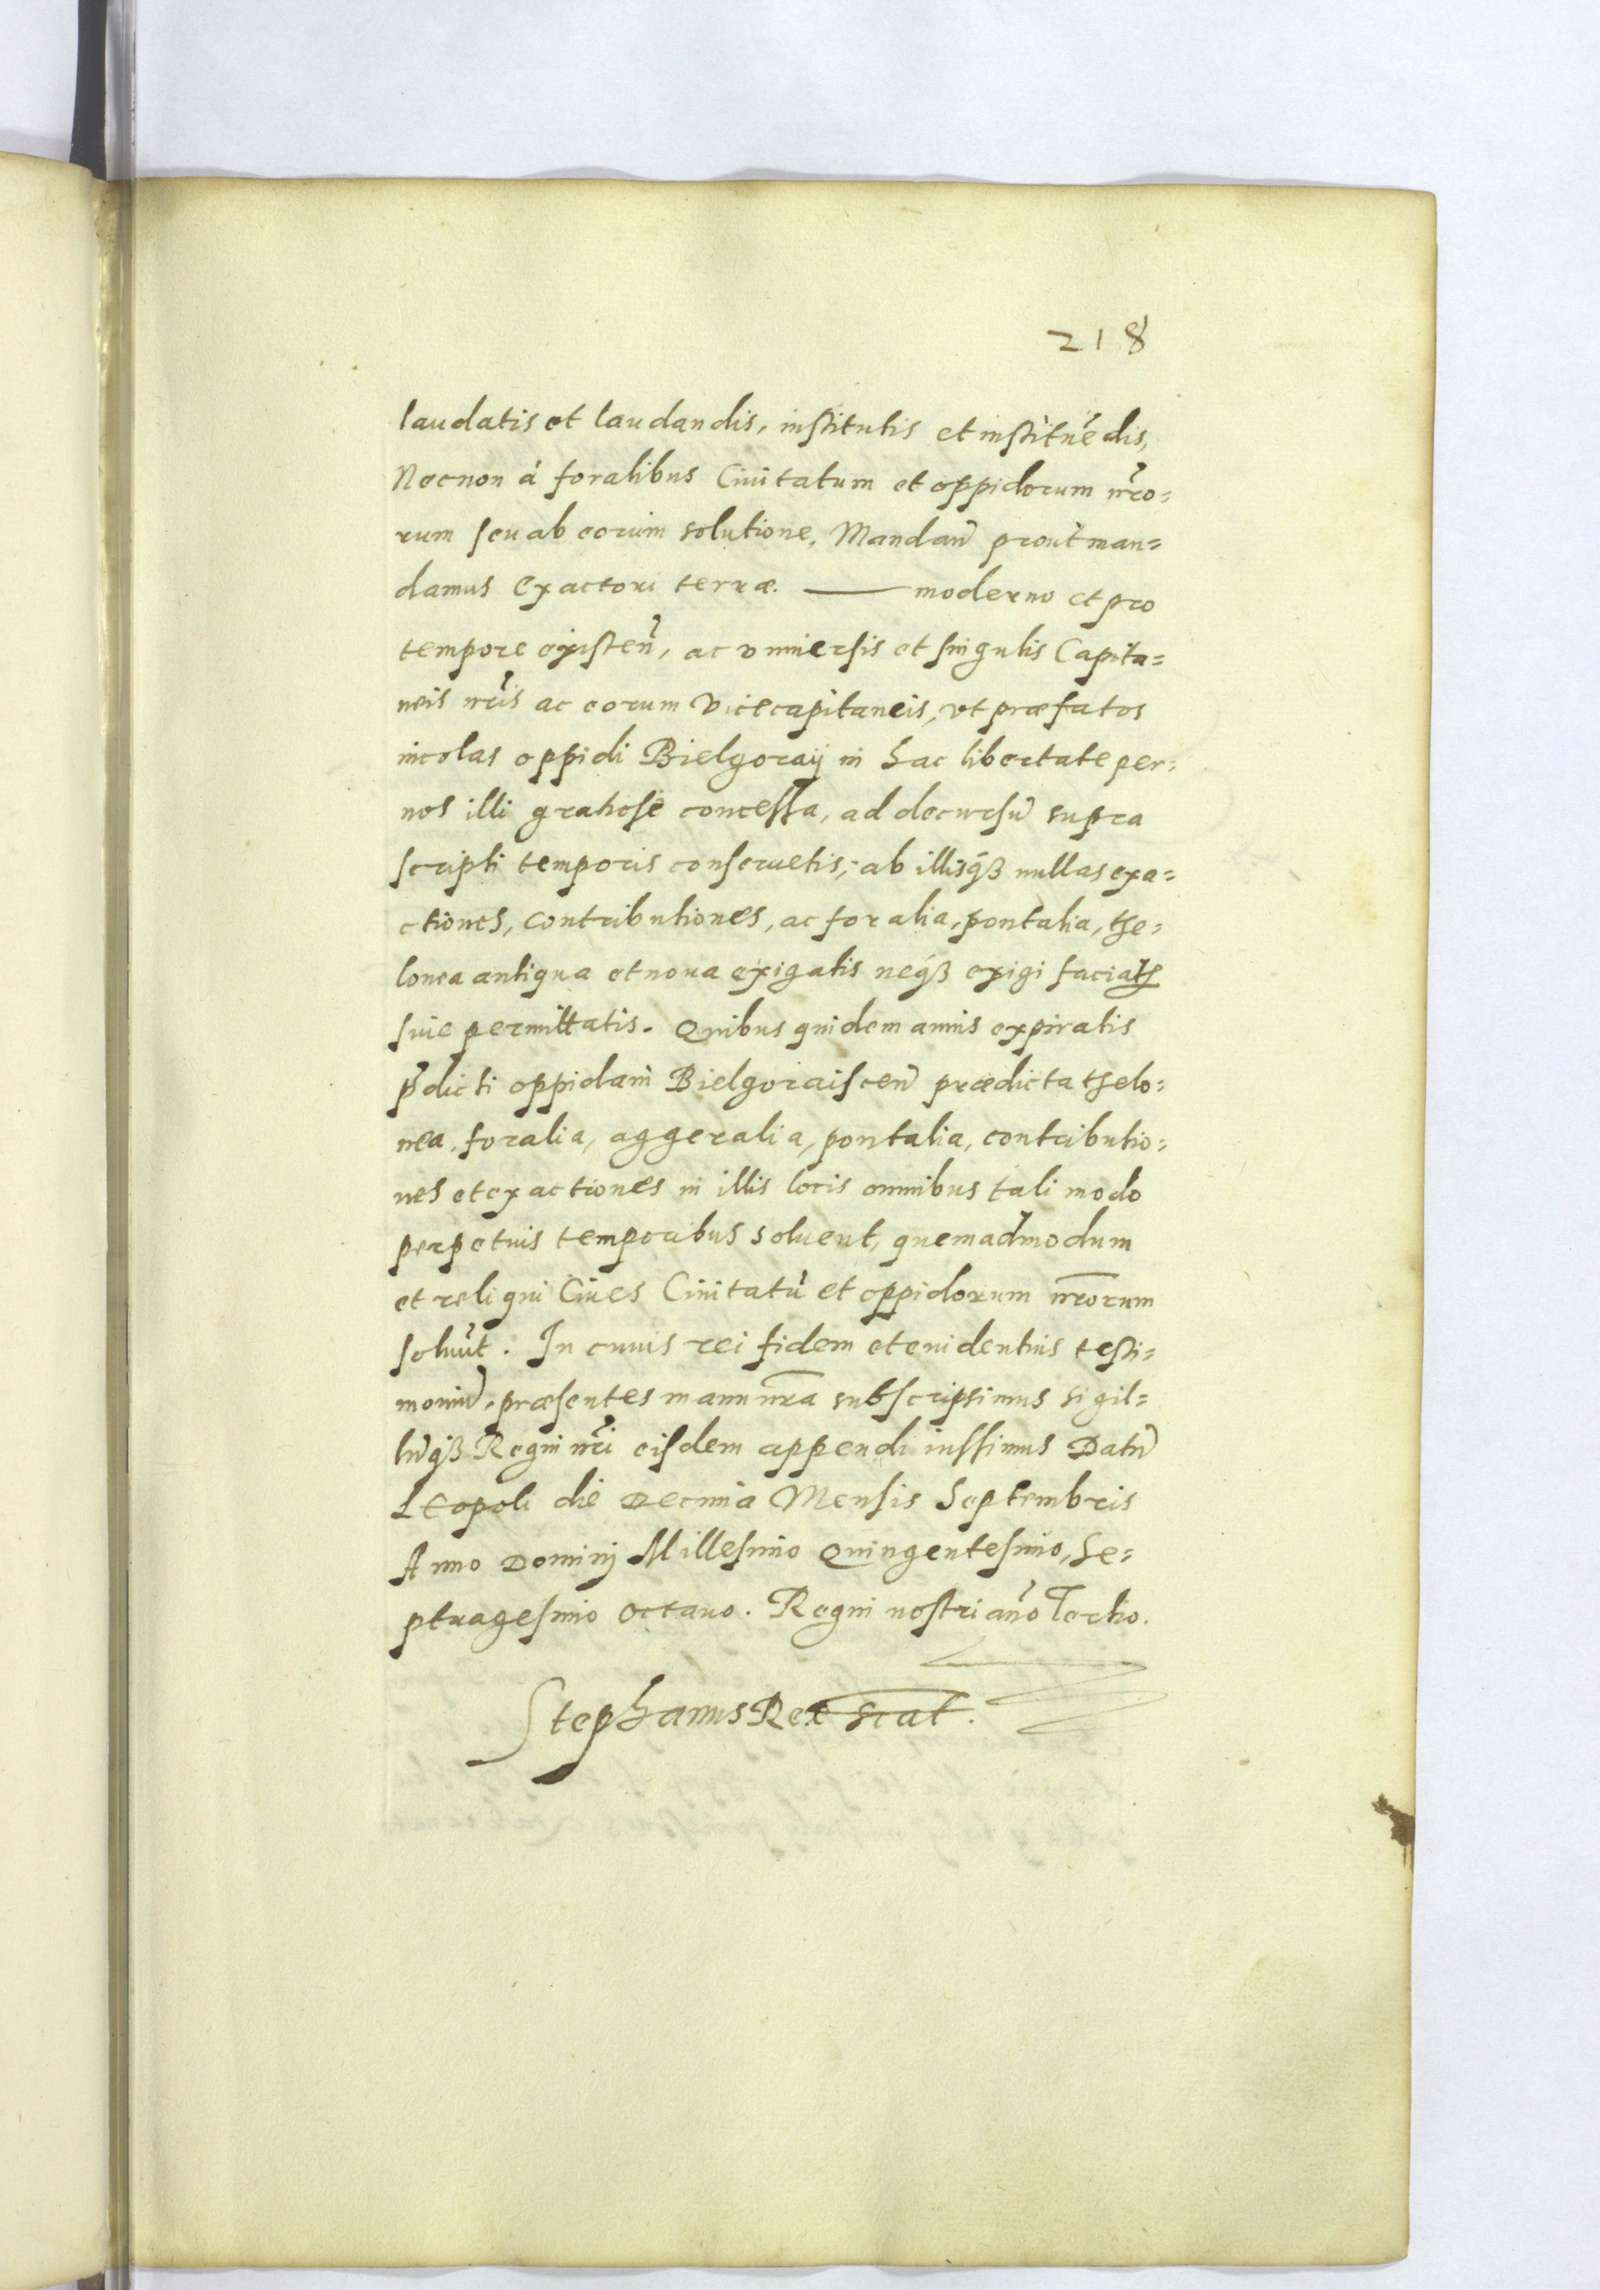 218
laudatis et laudandis, institutis et instituẽdis,
Necnon à foralibus Ciuitatum et oppidorum nr̃o=
rum seu ab eorum solutione. Mandañ prout man=
damus Exactori terræ. —— moderno et pro
tempore existeñ, ac vniuersis et singulis Capita=
neis nr̃is ac eorum Vicecapitaneis, vt præfatos
incolas oppidi Bielgoraij in hac libertate per
nos illi gratiose concessa, ad decursũ supra
scripti temporis conseruetis, ab illisq3 nullas exa=
ctiones, contributiones, ac foralia, pontalia, the=
lonea antiqua et noua exigatis neq3 exigi faciatis
siue permittatis. Quibus quidem annis expiratis
p̃dicti oppidani Bielgoraisceñ prædicta thelo=
nea, foralia, aggeralia, pontalia, contributio=
nes et exactiones in illis locis omnibus tali modo
perpetuis temporibus soluent, quemadmodum
et reliqui Ciues Ciuitatũ et oppidorum nr̃orum
soluũt. In cuius rei fidem et euidentius testi=
moniũ, præsentes manu nr̃a subscripsimus sigil=
lũq3 Regni nr̃i eisdem appendi iussimus Datũ
Leopoli die Decima Mensis Septembris
Anno Dominj Millesimo Quingentesimo, Se=
ptuagesimo octauo. Regni nostri año Tertio.
Stephanus Rex scãt.